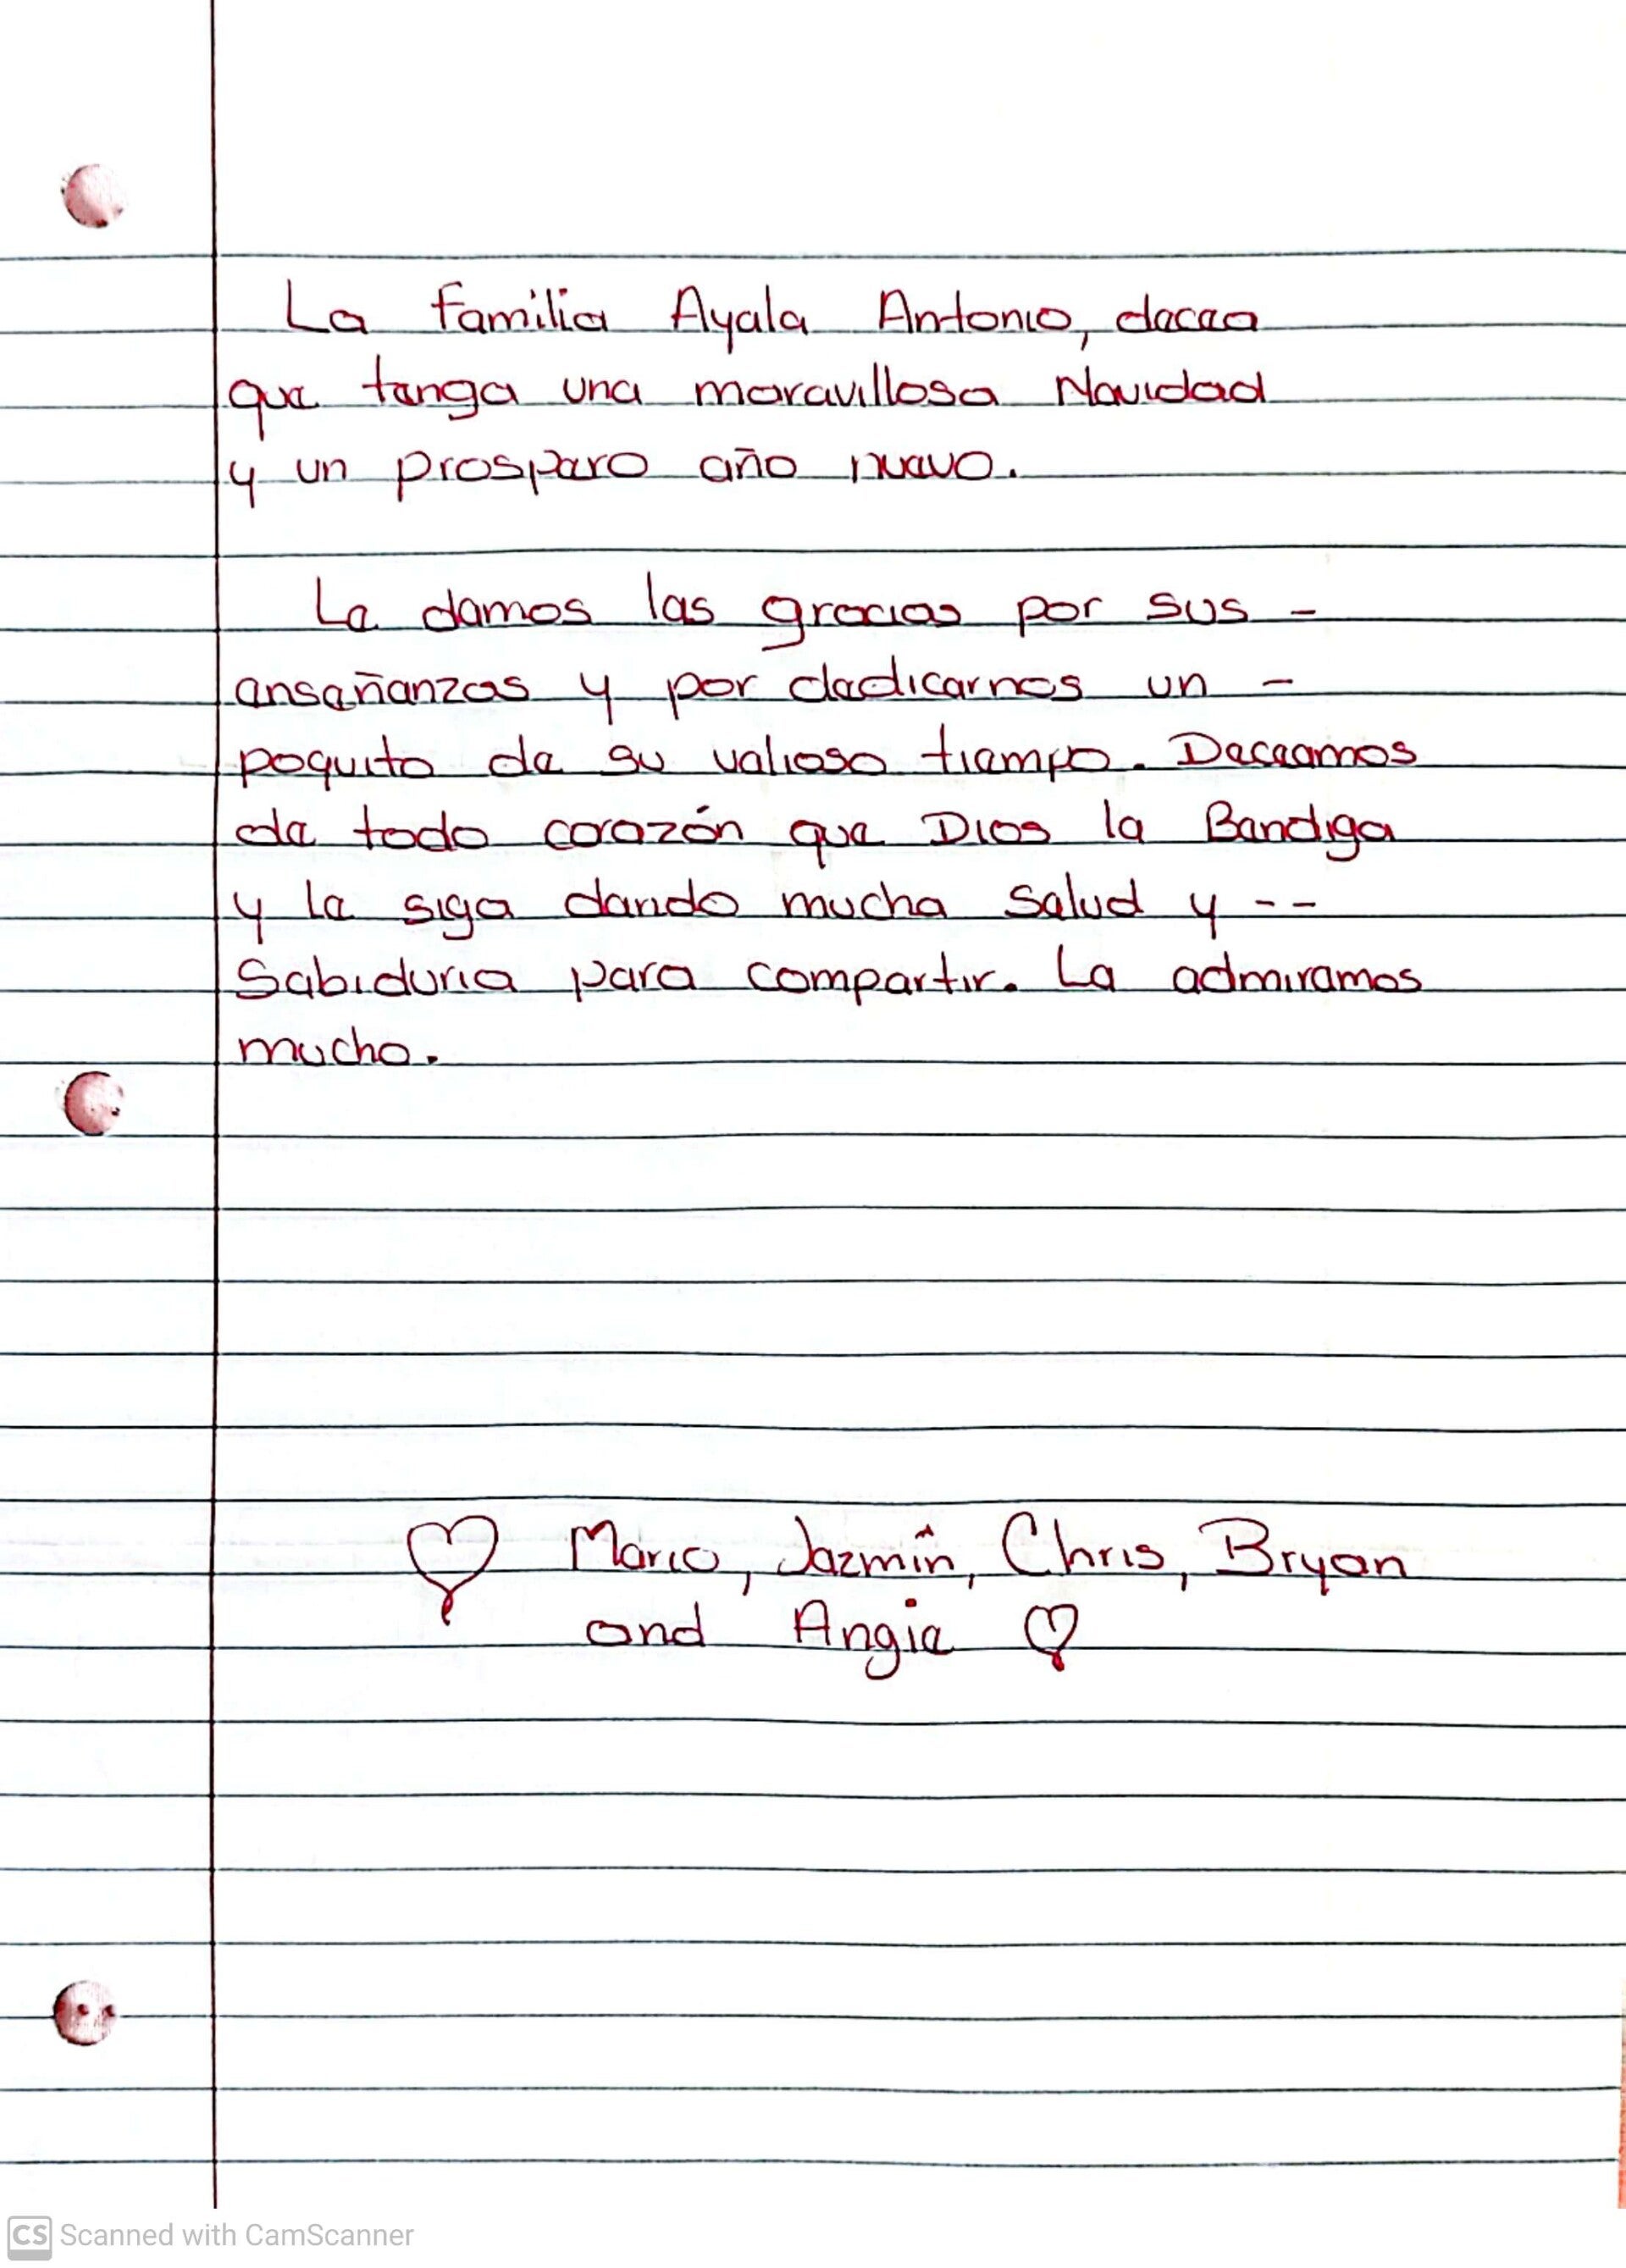 La familia Ayala Antonio, decea
que tenga una maravillosa Navidad
y un prospero año nuevo.
Le damos las gracias por sus -
enseñanzas y por dedicarnos un -
poquito de su valioso tiempo. Deceamos
de todo corazón que Dios la Bendiga
y le siga dando mucha salud y --
Sabiduria para compartir. La admiramos
mucho.
♡ Mario, Jazmín, Chris, Bryan
and Angie ♡
CS Scanned with CamScanner